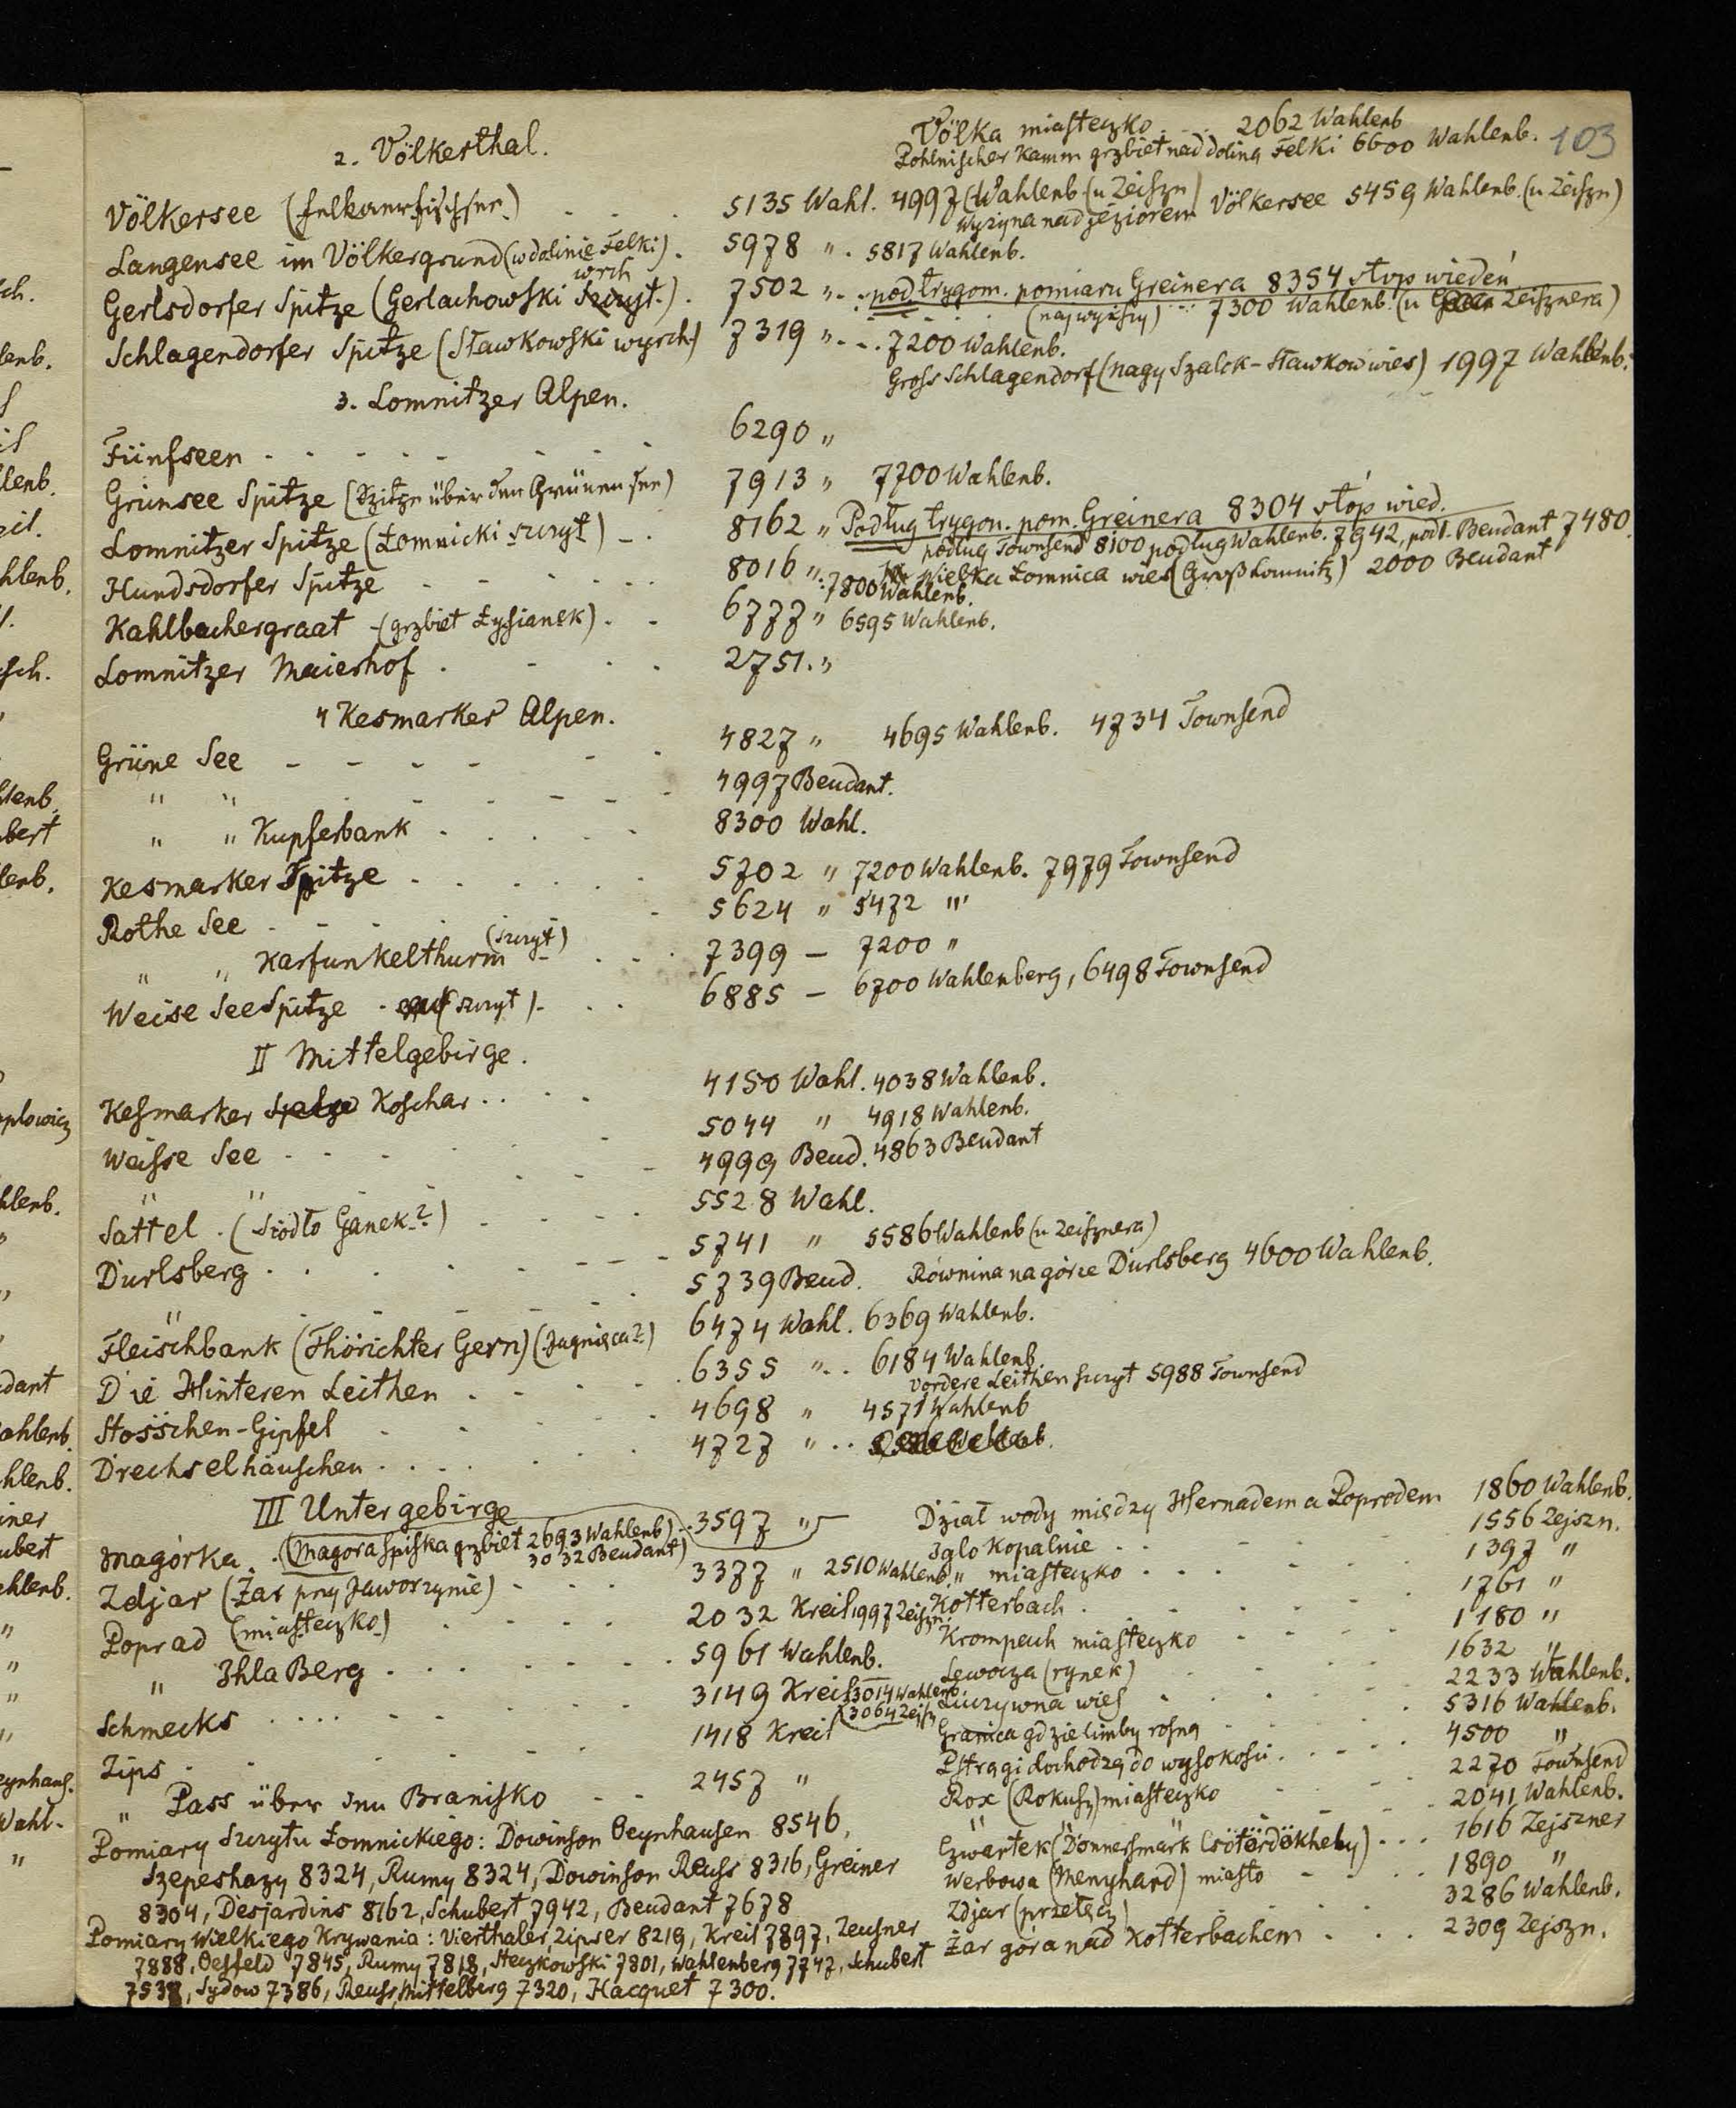 103
2. Völkerthal.
Völka miasteczko . . . 2062 Wahlenb
Pohlnischer Kamm grzbiet nad doliną Felki 6600 Wahlenb.
Völkersee (Felkaerfischsee) . . . 5135 Wahl. 4997 (Wahlenb (u Zeiszn)
Wyżyna nad jeziorem Völkersee 5459 Wahlenb. (u Zeiszn)
Langensee im Völkergrund (w dolinie Felki) . 5978 " . 5817 Wahlenb.
Gerlsdorfer Spitze (Gerlachowski wrch) . 7502 " . . pod trygom. pomiaru Greinera 8354 stop wiedeń
(najwyższy) . . . 7300 Wahlenb. (u Zeisznera)
Schlagendorfer Spitze (Sławkowski wyrch) 7319 " . . . 7200 Wahlenb.
Gross Schlagendorf (Nagy Szalok - Sławkow wies) 1997 Wahlenb.
3. Lomnitzer Alpen.
Fünfseen . . . . . . 6290 "
Grünsee Spitze (Szitze über den Grünen See) 7913 " 7700 Wahlenb.
Lomnitzer Spitze (Łomnicki szczyt) - . 8162 " Podług trygon. pom. Greinera 8304 stóp wied.
podług Townsend 8100 podług Wahlenb. 7942, podł. Beudant 7480
Hundsdorfer Spitze . - . . . 8016 " : 7800 Wahlenb.
Wielka Łomnica wies (Groß Lomnitz) 2000 Beudant
Kahlbachergraat - (grzbiet Łysianek) . . 6777 " 6595 Wahlenb.
Lomnitzer Maierhof . . . . 2751. "
4 Kesmarker Alpen.
Grüne See - - - - - - 4827 " 4695 Wahlenb. 4734 Townsend
" " . - - - - 4997 Beudant.
" " Kupferbank . . . . . 8300 Wahl.
Kesmarker Spitze . . . . . . 5702 " 7200 Wahlenb. 7979 Townsend
Rothe See . - . . . 5624 " 5472 "
" " Karfunkelthurm (szczyt) . . . 7399 - 7200 "
Weise See Spitze . (szczyt) - . . 6885 - 6700 Wahlenberg, 6498 Townsend
II Mittelgebirge.
Kesmarker Koschar . . . . 4150 Wahl. 4038 Wahlenb.
Weisse See . . . . . 5044 " 4918 Wahlenb.
" " . . . - 4999 Beud. 4863 Beudant
Sattel . (Siodło Ganek?) . . . . 5528 Wahl.
Dürlsberg . . . . . - - - 5741 " 5586 Wahlenb (u Zeisznera)
" . - - - - . . 5739 Beud. Równina na górze Dürlsberg 4600 Wahlenb.
Fleischbank (Thörichter Gern) (Jagnięca?) 6474 Wahl. 6369 Wahlenb.
Die Hinteren Leithen . - . - . . 6355 " . . 6184 Wahlenb
vordere Leithen szczyt 5988 Townsend
Stösschen-Gipfel . . . . 4698 " 4571 Wahlenb
Drechselhäuschen . . . . . . 4727 " . .
III Untergebirge
Magórka . . (Magora Spiska grzbiet 2693 Wahlenb) . . 3597 "
3032 Beudant)
Zdjar (Żar przy Jaworzynie) . . . 3377 " 2510 Wahlenb.
Poprad (miasteczko) . . . . 2032 Kreil 1997 Zeiszn.
" Ihla Berg . . . . . . . 5961 Wahlenb.
Schmecks . . . . . . . . 3149 Kreil 3014 Wahlenb.
3064 Zejsz
Zips . . . . . . . 1418 Kreil
" Pass über den Branisko . . 2457 "
Dział wody między Hernadem a Popradem 1860 Wahlenb.
Iglo Kopalnie . . . . . . 1556 Zejszn.
" miasteczko . . . . . . 1397 "
Kotterbach . . . . . . 1761 "
Krompach miasteczko . . . . 1180 "
Lewocza (rynek) . . . . . 1632 "
Luczywna wieś . . . . . 2233 Wahlenb.
Granica gdzie limby rosną . . . . 5316 Wahlenb.
Pstrągi dochodzą do wysokości . . . . . 4500 "
Rox (Rokusz) miasteczko . . . . 2270 Townsend
2041 Wahlenb.
Czwartek (Donnersmark Csötördökhely) . . . 1616 Zejszner
Werbowa (Menyhard) miasto . . . 1890 "
Zdjar (przełęcz) . . . . 3286 Wahlenb.
Żar góra nad Kotterbachem . . . 2309 Zejszn.
Pomiary Szczytu Łomnickiego: Dowinson Oeynhausen 8546,
Szepeshazy 8324, Rumy 8324, Dowinson Reuss 8316, Greiner
8304, Desjardins 8162, Schubert 7942, Beudant 7678
Pomiary Wielkiego Krywania: Vierthaler, Zipser 8219, Kreil 7897, Zeusner
7888, Oesfeld 7845, Rumy 7818, Steczkowski 7801, Wahlenberg 7747, Schubert
7538, Sydow 7386, Reuss, Mittelberg 7320, Hacquet 7300.